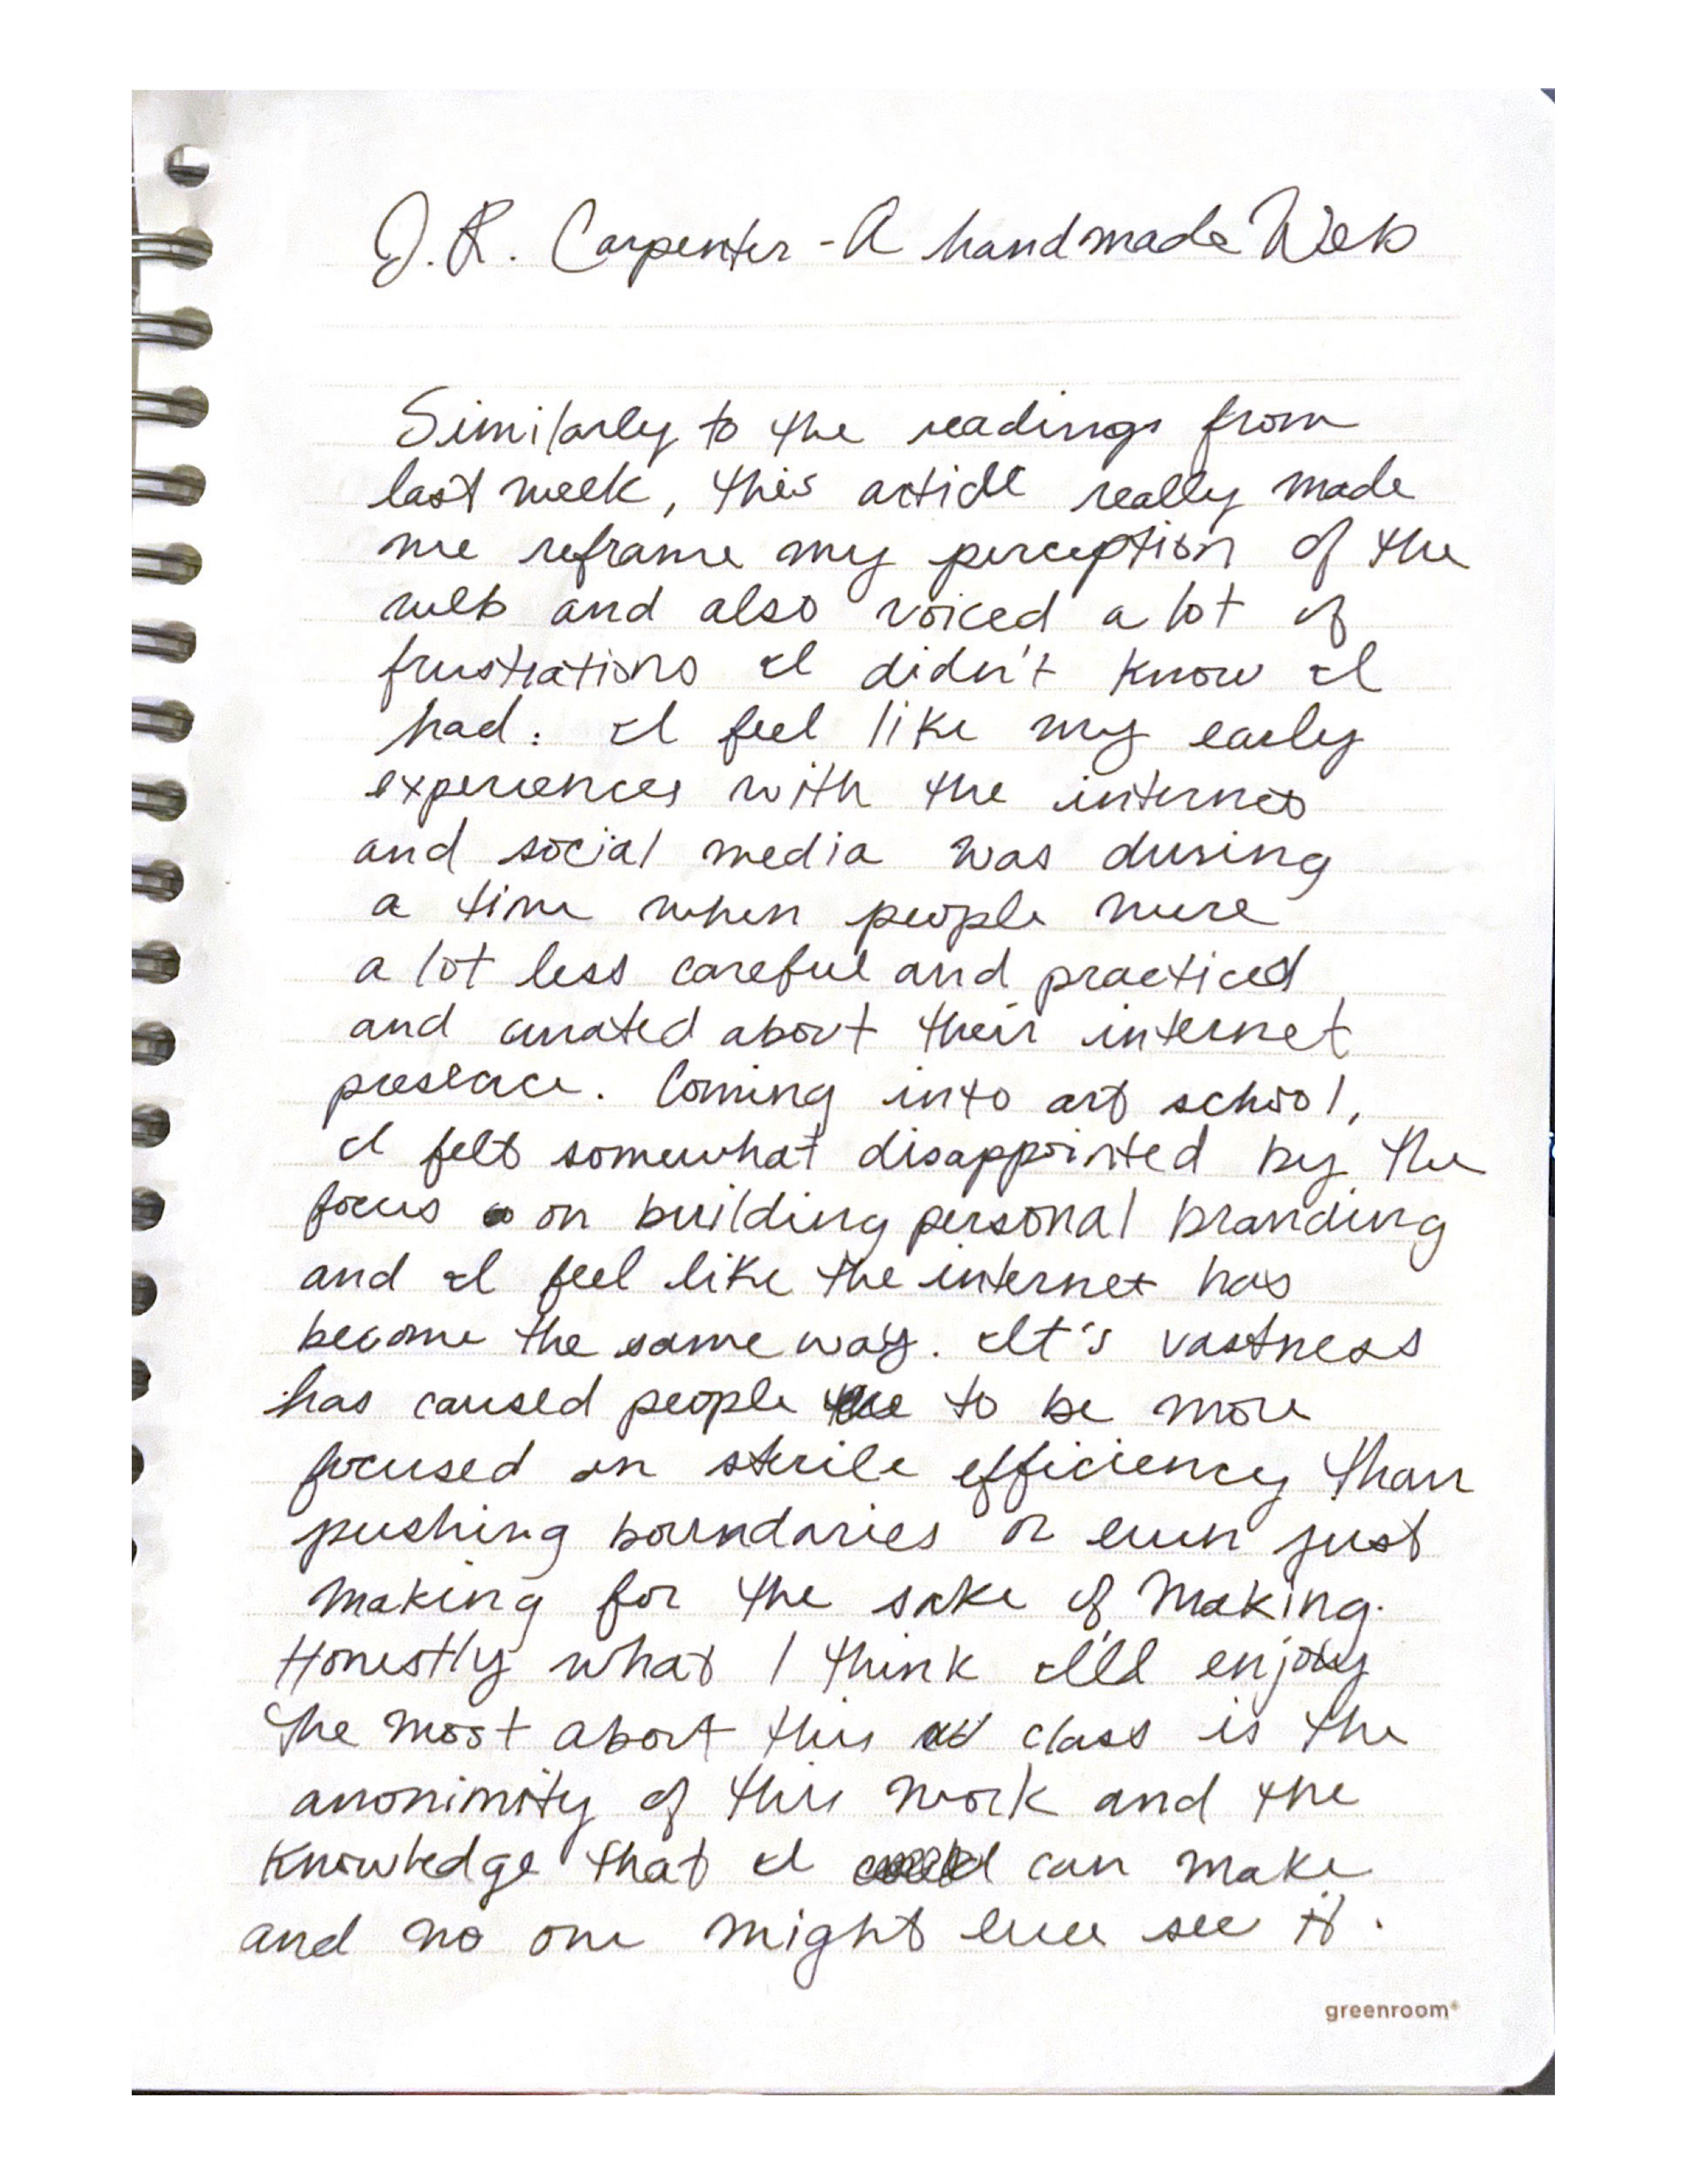 J.R. Carpenter - A handmade Web
Similarly to the readings from
last week, this article really made
me reframe my perception of the
web and also voiced a lot of
frustrations I didn't know I
had. I feel like my early
experiences with the internet
and social media was during
a time when people were
a lot less careful and practiced
and curated about their internet
presence. Coming into art school,
I felt somewhat disappointed by the
focus on building personal branding
and I feel like the internet has
become the same way. It's vastness
has caused people to be more
focused on sterile efficiency than
pushing boundaries or even just
making for the sake of making.
Honestly what I think I'll enjoy
the most about this class is the
anonimity of this work and the
knowledge that I can make
and no one might ever see it.
greenroom